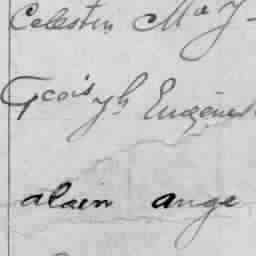 Celestin Ma J
Fcois Jh Eugène
alain ange